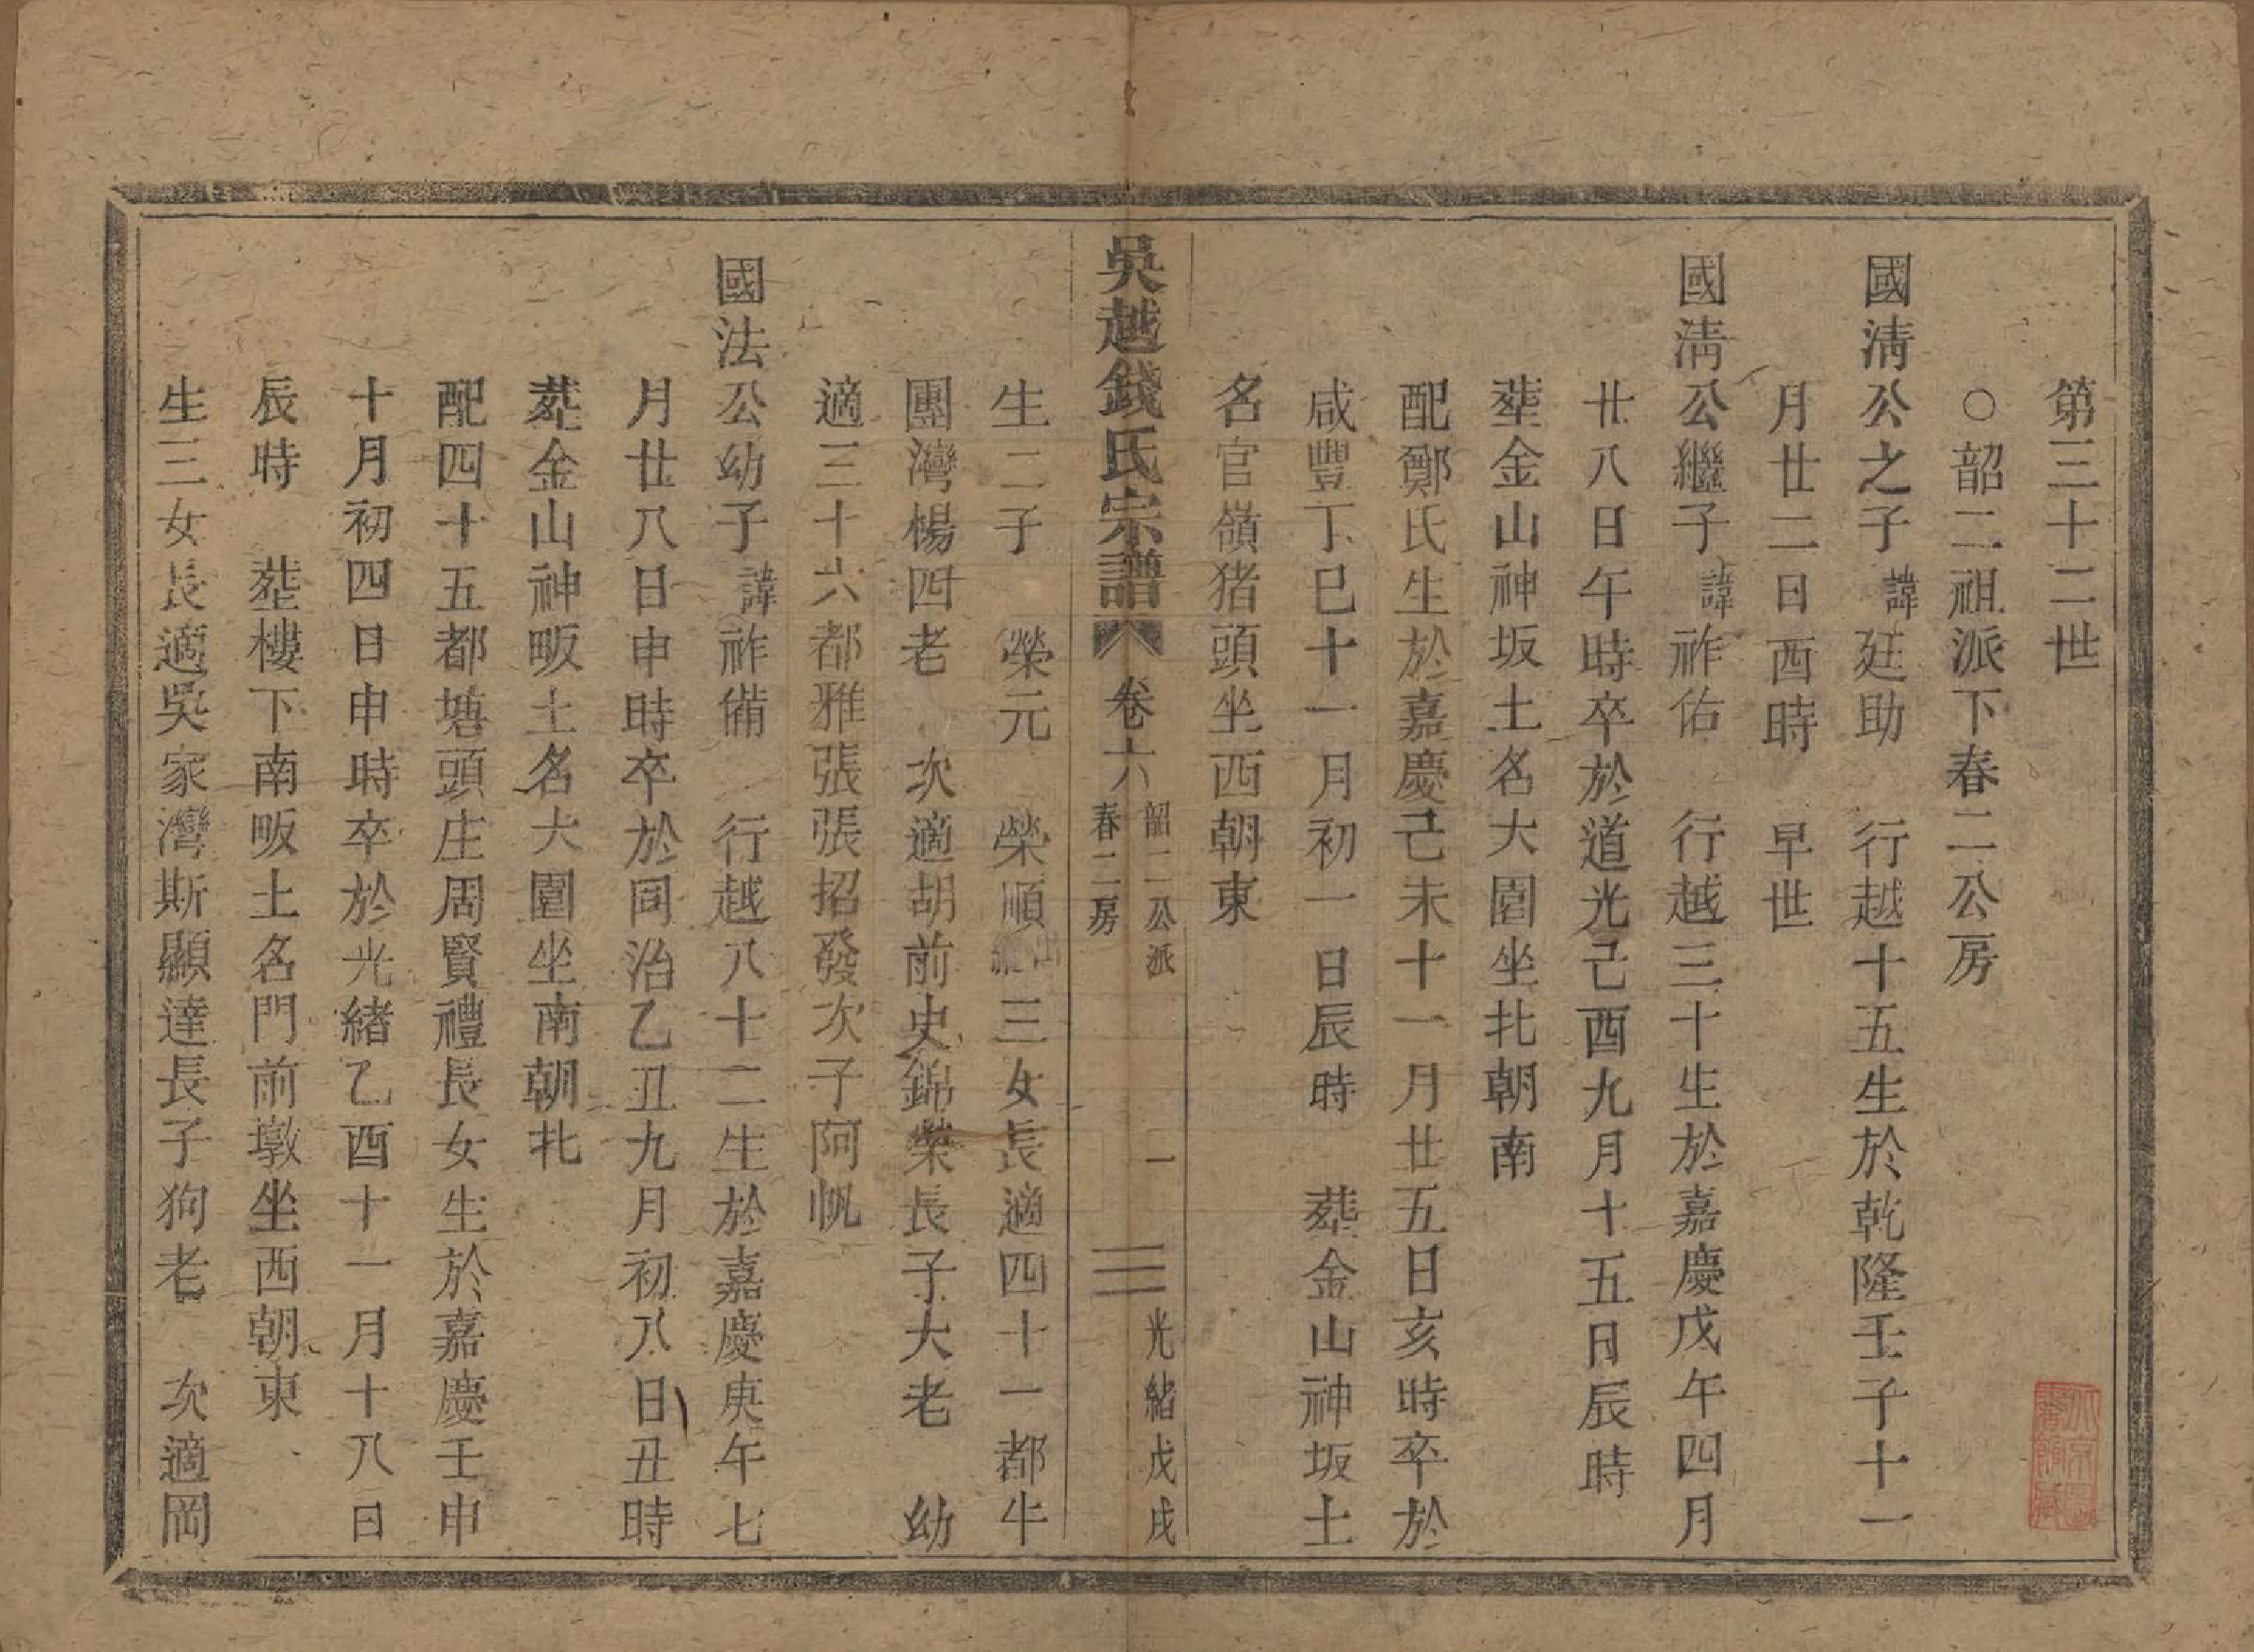 第三十二世
○韶二祖派下春二公房
國淸公之子諱廷助　行越十五生於乾隆壬子十一
月廿二日酉時　早世
國淸公繼子諱祚佑　行越三十生於嘉慶戊午四月
廿八日午時卒於道光己酉九月十五日辰時
塟金山神坂土名大園坐北朝南
配鄭氏生於嘉慶己未十一月廿五日亥時卒於
咸豐丁巳十一月初一日辰時　塟金山神坂土
名官嶺猪頭坐西朝東
吳越錢氏宗譜　卷十六　韶二公派　春二房　一　三　光緒戊戌
生二子　榮元　榮順出繼　三女長適四十一都牛
團灣楊四老　次適胡前史錦榮長子大老　幼
適三十六都雅張張招發次子阿帆
國法公幼子諱祚備　行越八十二生於嘉慶庚午七
月廿八日申時卒於同治乙丑九月初八日丑時
塟金山神畈土名大園坐南朝北
配四十五都塘頭庄周賢禮長女生於嘉慶壬申
十月初四日申時卒於光緒乙酉十一月十八日
辰時　塟樓下南畈土名門前墩坐西朝東
生三女長適吳家灣斯顯達長子狗老　次適岡